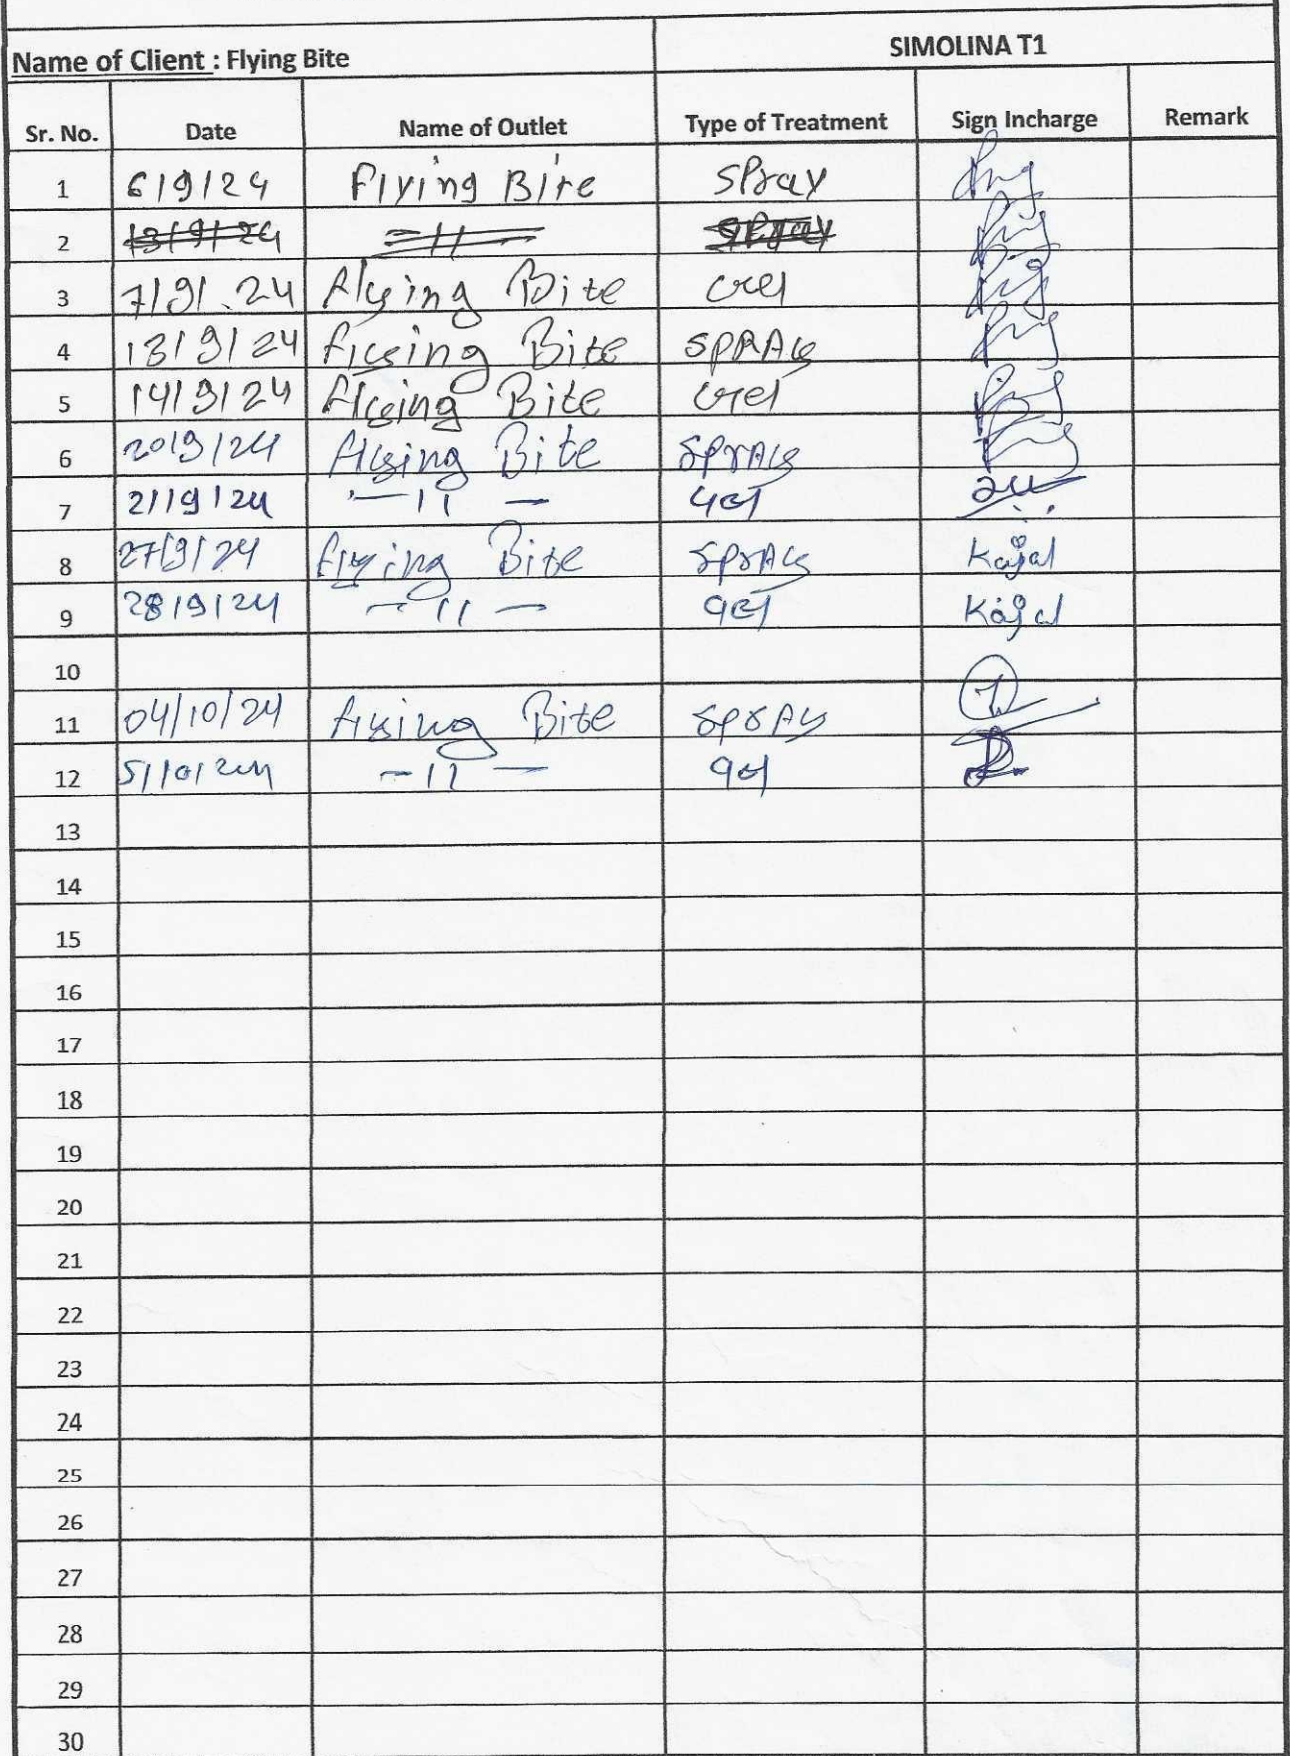 Name of Client : Flying Bite SIMOLINA T1
Sr. No. Date Name of Outlet Type of Treatment Sign Incharge Remark
1 6/9/24 Flying Bite Spray
2 13/9/24 -11- Spray
3 7/9/.24 Flying Bite Gel
4 13/9/24 Flying Bite SPRAY
5 14/9/24 Flying Bite Gel
6 20/9/24 Flying Bite SPRAY
7 21/9/24 -11- gel
8 27/9/24 Flying Bite SPRAY Kajal
9 28/9/24 -11- gel Kajal
10
11 04/10/24 Flying Bite SPRAY
12 5/10/24 -11- gel
13
14
15
16
17
18
19
20
21
22
23
24
25
26
27
28
29
30